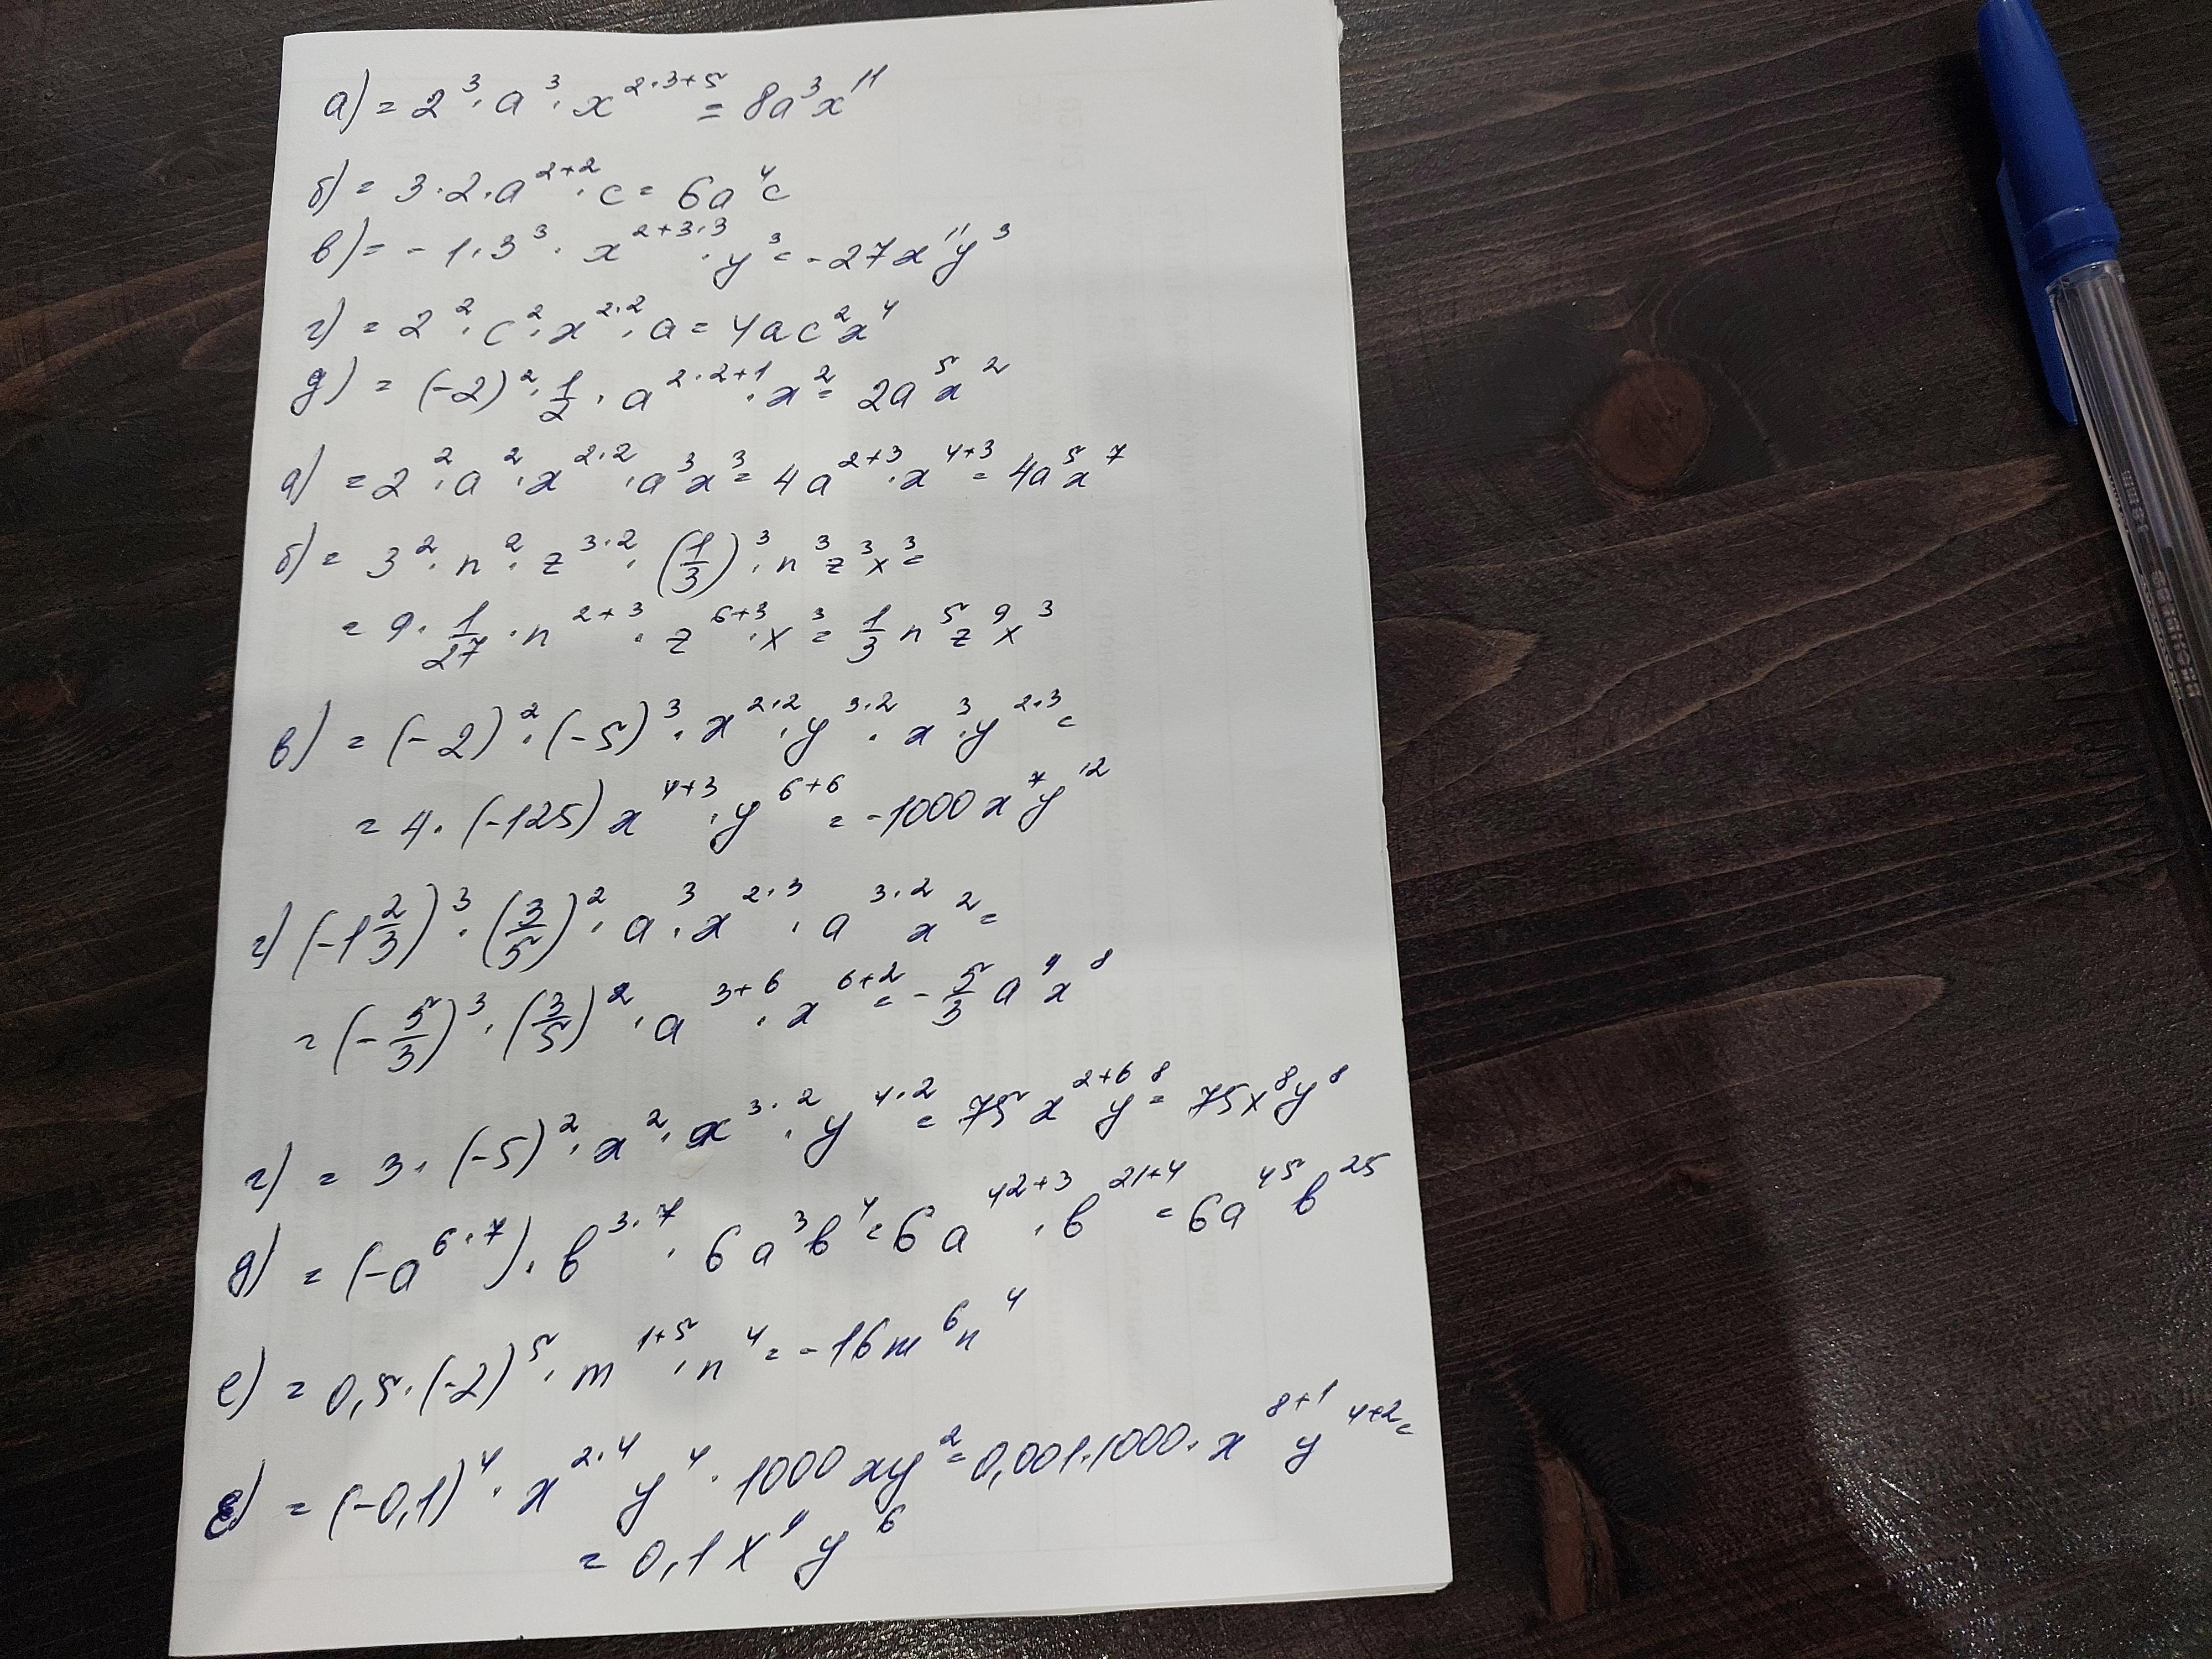 а) = 2³ · a³ · x^{2·3+5} = 8a³x¹¹
б) = 3 · 2 · a^{2+2} · c = 6a⁴c
в) = - 1 · 3³ · x^{2+3·3} · y³ = -27x¹¹y³
г) = 2² · c² · x^{2·2} · a = 4ac²x⁴
д) = (-2)² · 1/2 · a^{2·2+1} · x² = 2a⁵x²
а) = 2² · a² · x^{2·2} · a³x³ = 4a^{2+3} · x^{4+3} = 4a⁵x⁷
б) = 3² · n² · z^{3·2} · (1/3)³ · n³z³x³ =
= 9 · 1/27 · n^{2+3} · z^{6+3} · x³ = 1/3 n⁵z⁹x³
в) = (-2)² · (-5)³ · x^{2·2} · y^{3·2} · x³ · y^{2·3} =
= 4 · (-125) x^{4+3} · y^{6+6} = -1000x⁷y¹²
г) (-1 2/3)³ · (3/5)² · a³ · x^{2·3} · a^{3·2} x² =
= (-5/3)³ · (3/5)² · a^{3+6} · x^{6+2} = -5/3 a⁹x⁸
г) = 3 · (-5)² · x² · x^{3·2} · y^{4·2} = 75x^{2+6}y⁸ = 75x⁸y⁸
д) = (-a^{6·7}) · b^{3·7} · 6a³b⁴ = 6a^{42+3} · b^{21+4} = 6a⁴⁵b²⁵
е) = 0,5 · (-2)⁵ · m^{1+5} · n⁴ = -16m⁶n⁴
е) = (-0,1)⁴ · x^{2·4}y⁴ · 1000xy² = 0,001 · 1000 · x^{8+1}y^{4+2} =
= 0,1x⁹y⁶